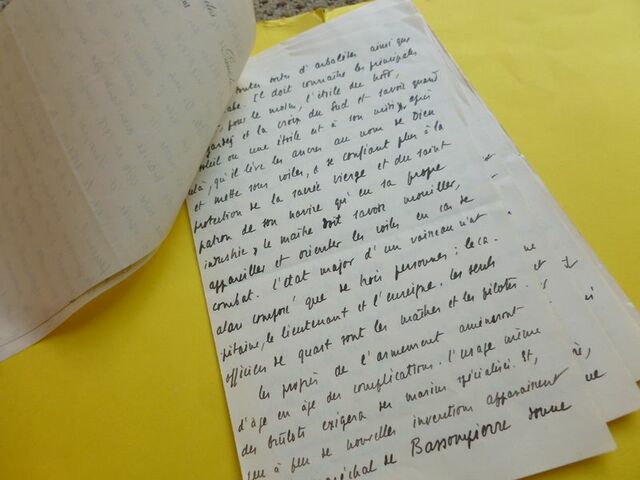 toutes sortes d'arbalètes ainsi que
Il doit connaître les principales
pour le moins, l'étoile du nord,
gardes et la croix du Sud et savoir quand
soleil ou une étoile est à son midi, après
qu'il lève les ancres au nom de Dieu
et mette sous voiles, se confiant plus à la
protection de la sacrée vierge et du saint
patron de son navire qu'en sa propre
industrie, le maître doit savoir mouiller,
appareiller et orienter les voiles en cas de
combat. L'état major d'un vaisseau n'est
alors composé que de trois personnes : le ca-
pitaine, le lieutenant et l'enseigne. Les seuls
officiers de quart sont les maîtres et les pilotes.
Les progrès de l'armement amèneront
d'âge en âge des complications. L'usage même
des brûlots exigera des marins spécialisés. Et,
peu à peu de nouvelles inventions apparaissent
maréchal de Bassompierre donne